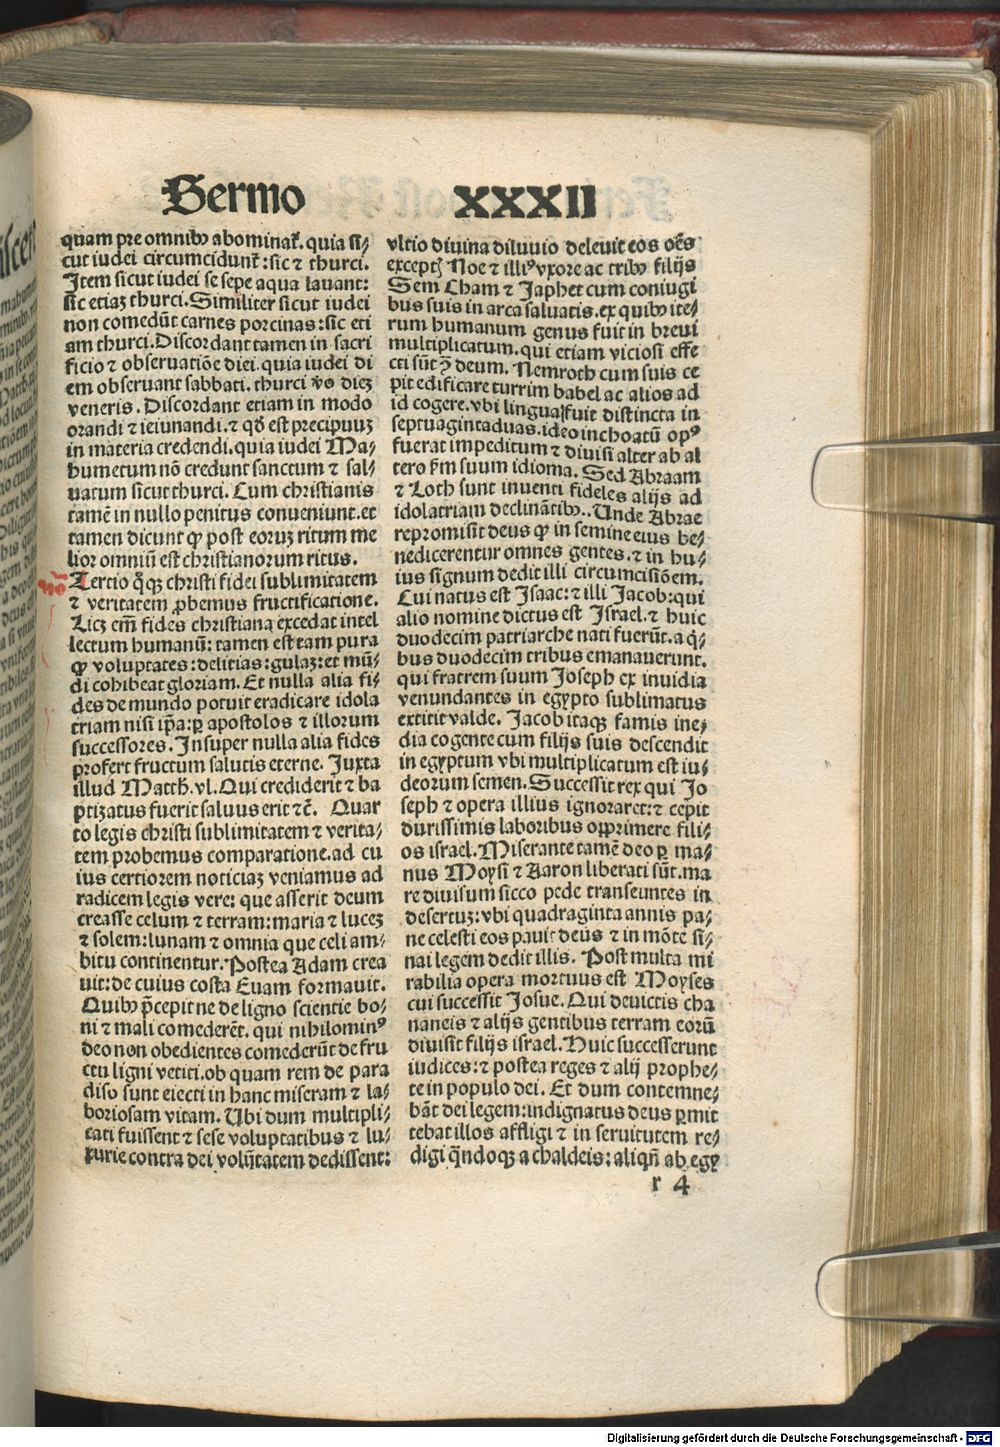 Sermo XXXII
quam pre omnibꝰ abominat̃. quia si⸗
cut iudei circumcidunt̃: sic ⁊ thurci.
Item sicut iudei se sepe aqua lauant:
sic etiaꝫ thurci. Similiter sicut iudei
non comedũt carnes porcinas: sic eti
am thurci. Discordant tamen in sacri
ficio ⁊ obseruatiõe diei. quia iudei di
em obseruant sabbati. thurci ṽo dieꝫ
veneris. Discordant etiam in modo
orandi ⁊ ieiunandi. ⁊ qd̃ est precipuuꝫ
in materia credendi. quia iudei Ma⸗
humetum nõ credunt sanctum ⁊ sal⸗
uatum sicut thurci. Cum christianis
tamẽ in nullo penitus conueniunt. et
tamen dicunt ꝙ post eoruꝫ ritum me
lior omniũ est christianorum ritus.
Tertio q̃qꝫ christi fidei sublimitatem
⁊ veritatem ꝓbemus fructificatione.
Licꝫ em̃ fides christiana excedat intel
lectum humanũ: tamen est tam pura
ꝙ voluptates: delitias: gulaꝫ: et mũ⸗
di cohibeat gloriam. Et nulla alia fi⸗
des de mundo potuit eradicare idola
triam nisi ip̃a: ꝑ apostolos ⁊ illorum
successores. Insuper nulla alia fides
profert fructum salutis eterne. Juxta
illud Matth. vl. Qui crediderit ⁊ ba
ptizatus fuerit saluus erit ⁊c̃. Quar
to legis christi sublimitatem ⁊ verita⸗
tem probemus comparatione. ad cu
ius certiorem noticiaꝫ veniamus ad
radicem legis vere: que asserit deum
creasse celum ⁊ terram: maria ⁊ luceꝫ
⁊ solem: lunam ⁊ omnia que celi am⸗
bitu continentur. Postea Adam crea
uit: de cuius costa Euam formauit.
Quibꝰ p̃cepit ne de ligno scientie bo⸗
ni ⁊ mali comederẽt. qui nihilominꝰ
deo non obedientes comederũt de fru
ctu ligni vetiti. ob quam rem de para
diso sunt eiecti in hanc miseram ⁊ la⸗
boriosam vitam. Ubi dum multipli⸗
cati fuissent ⁊ sese voluptatibus ⁊ lu⸗
xurie contra dei volũtatem dedissent:
vltio diuina diluuio deleuit eos oẽs
exceptꝭ Noe ⁊ illiꝰ vxore ac tribꝰ filijs
Sem Cham ⁊ Japhet cum coniugi
bus suis in arca saluatis. ex quibꝰ ite⸗
rum humanum genus fuit in breui
multiplicatum. qui etiam viciosi effe
cti sũt ꝯ̃ deum. Nemroth cum suis ce
pit edificare turrim babel ac alios ad
id cogere. vbi lingua fuit distincta in
septuagintaduas. ideo inchoatũ opꝰ
fuerat impeditum ⁊ diuisi alter ab al
tero fm̃ suum idioma. Sed Abraam
⁊ Loth sunt inuenti fideles alijs ad
idolatriam declinãtibꝰ.. Unde Abrae
repromisit deus ꝙ in semine eius be⸗
nedicerentur omnes gentes. ⁊ in hu⸗
ius signum dedit illi circumcisiõem.
Cui natus est Isaac: ⁊ illi Jacob: qui
alio nomine dictus est Israel. ⁊ huic
duodecim patriarche nati fuerũt. a q̃⸗
bus duodecim tribus emanauerunt.
qui fratrem suum Joseph ex inuidia
venundantes in egypto sublimatus
extitit valde. Jacob itaqꝫ famis ine⸗
dia cogente cum filijs suis descendit
in egyptum vbi multiplicatum est iu⸗
deorum semen. Successit rex qui Jo
seph ⁊ opera illius ignoraret: ⁊ cepit
durissimis laboribus opprimere fili⸗
os israel. Miserante tamẽ deo ꝑ ma⸗
nus Moysi ⁊ Aaron liberati sũt. ma
re diuisum sicco pede transeuntes in
desertuꝫ: vbi quadraginta annis pa⸗
ne celesti eos pauit deus ⁊ in mõte si⸗
nai legem dedit illis. Post multa mi
rabilia opera mortuus est Moyses
cui successit Josue. Qui deuictis cha
naneis ⁊ alijs gentibus terram eorũ
diuisit filijs israel. Huic successerunt
iudices: ⁊ postea reges ⁊ alij prophe⸗
te in populo dei. Et dum contemne⸗
bãt dei legem: indignatus deus ꝑmit
tebat illos affligi ⁊ in seruitutem re⸗
digi q̃ndoqꝫ a chaldeis: aliqñ ab egy
r 4
Digitalisierung gefördert durch die Deutsche Forschungsgemeinschaft - DFG